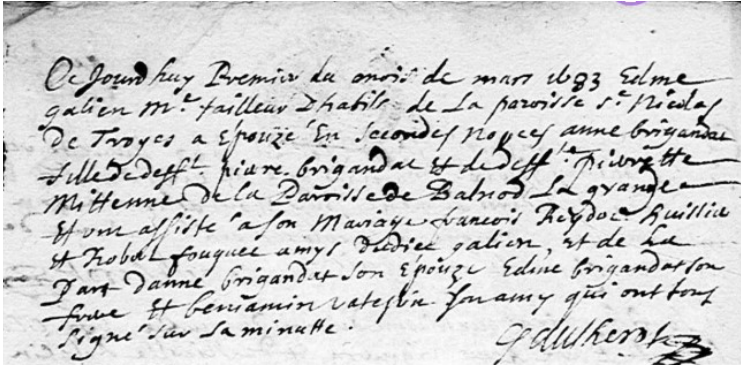 Ce Jourdhuy Premier du mois de mars 1683 Edme
galien Mr. tailleur Dhabits de La paroisse st. Nicolas
de Troyes a Epouzé En secondes nopces anne brigandat
fille de deff.t pierre brigandat et de deff.te pierrette
Mittenne de la Paroisse de Balnod La grange
Et ont assisté a son Mariage francois Reydoc huissier
et Robert fouquee amys dudict galien, et de La
Part danne brigandat son Epouze Edme brigandat son
frere Et benjamin son amy qui ont tous
Signé sur La minutte.